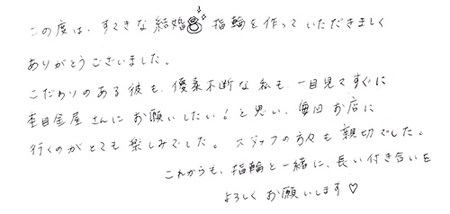 この度は、すてきな結婚💍指輪を作っていただきましく
ありがとうございました。
こだわりのある彼も、優柔不断な私も、一目見てすぐに
杢目金屋さんにお願いしたい！と思い、毎回お店に
行くのがとても楽しみでした。スタッフの方々も親切でした。
これからも、指輪と一緒に、長い付き合いを
よろしくお願いします♡